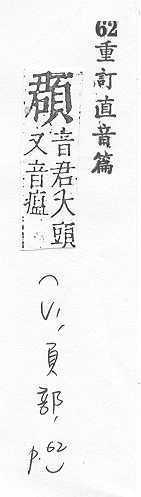 62重訂直音篇
頵
音君大頭
又音瘟
(VI, 頁部, p.62)